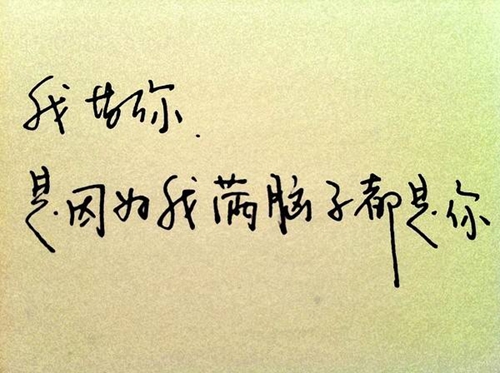 我 你.
是因为我满脑子都是你